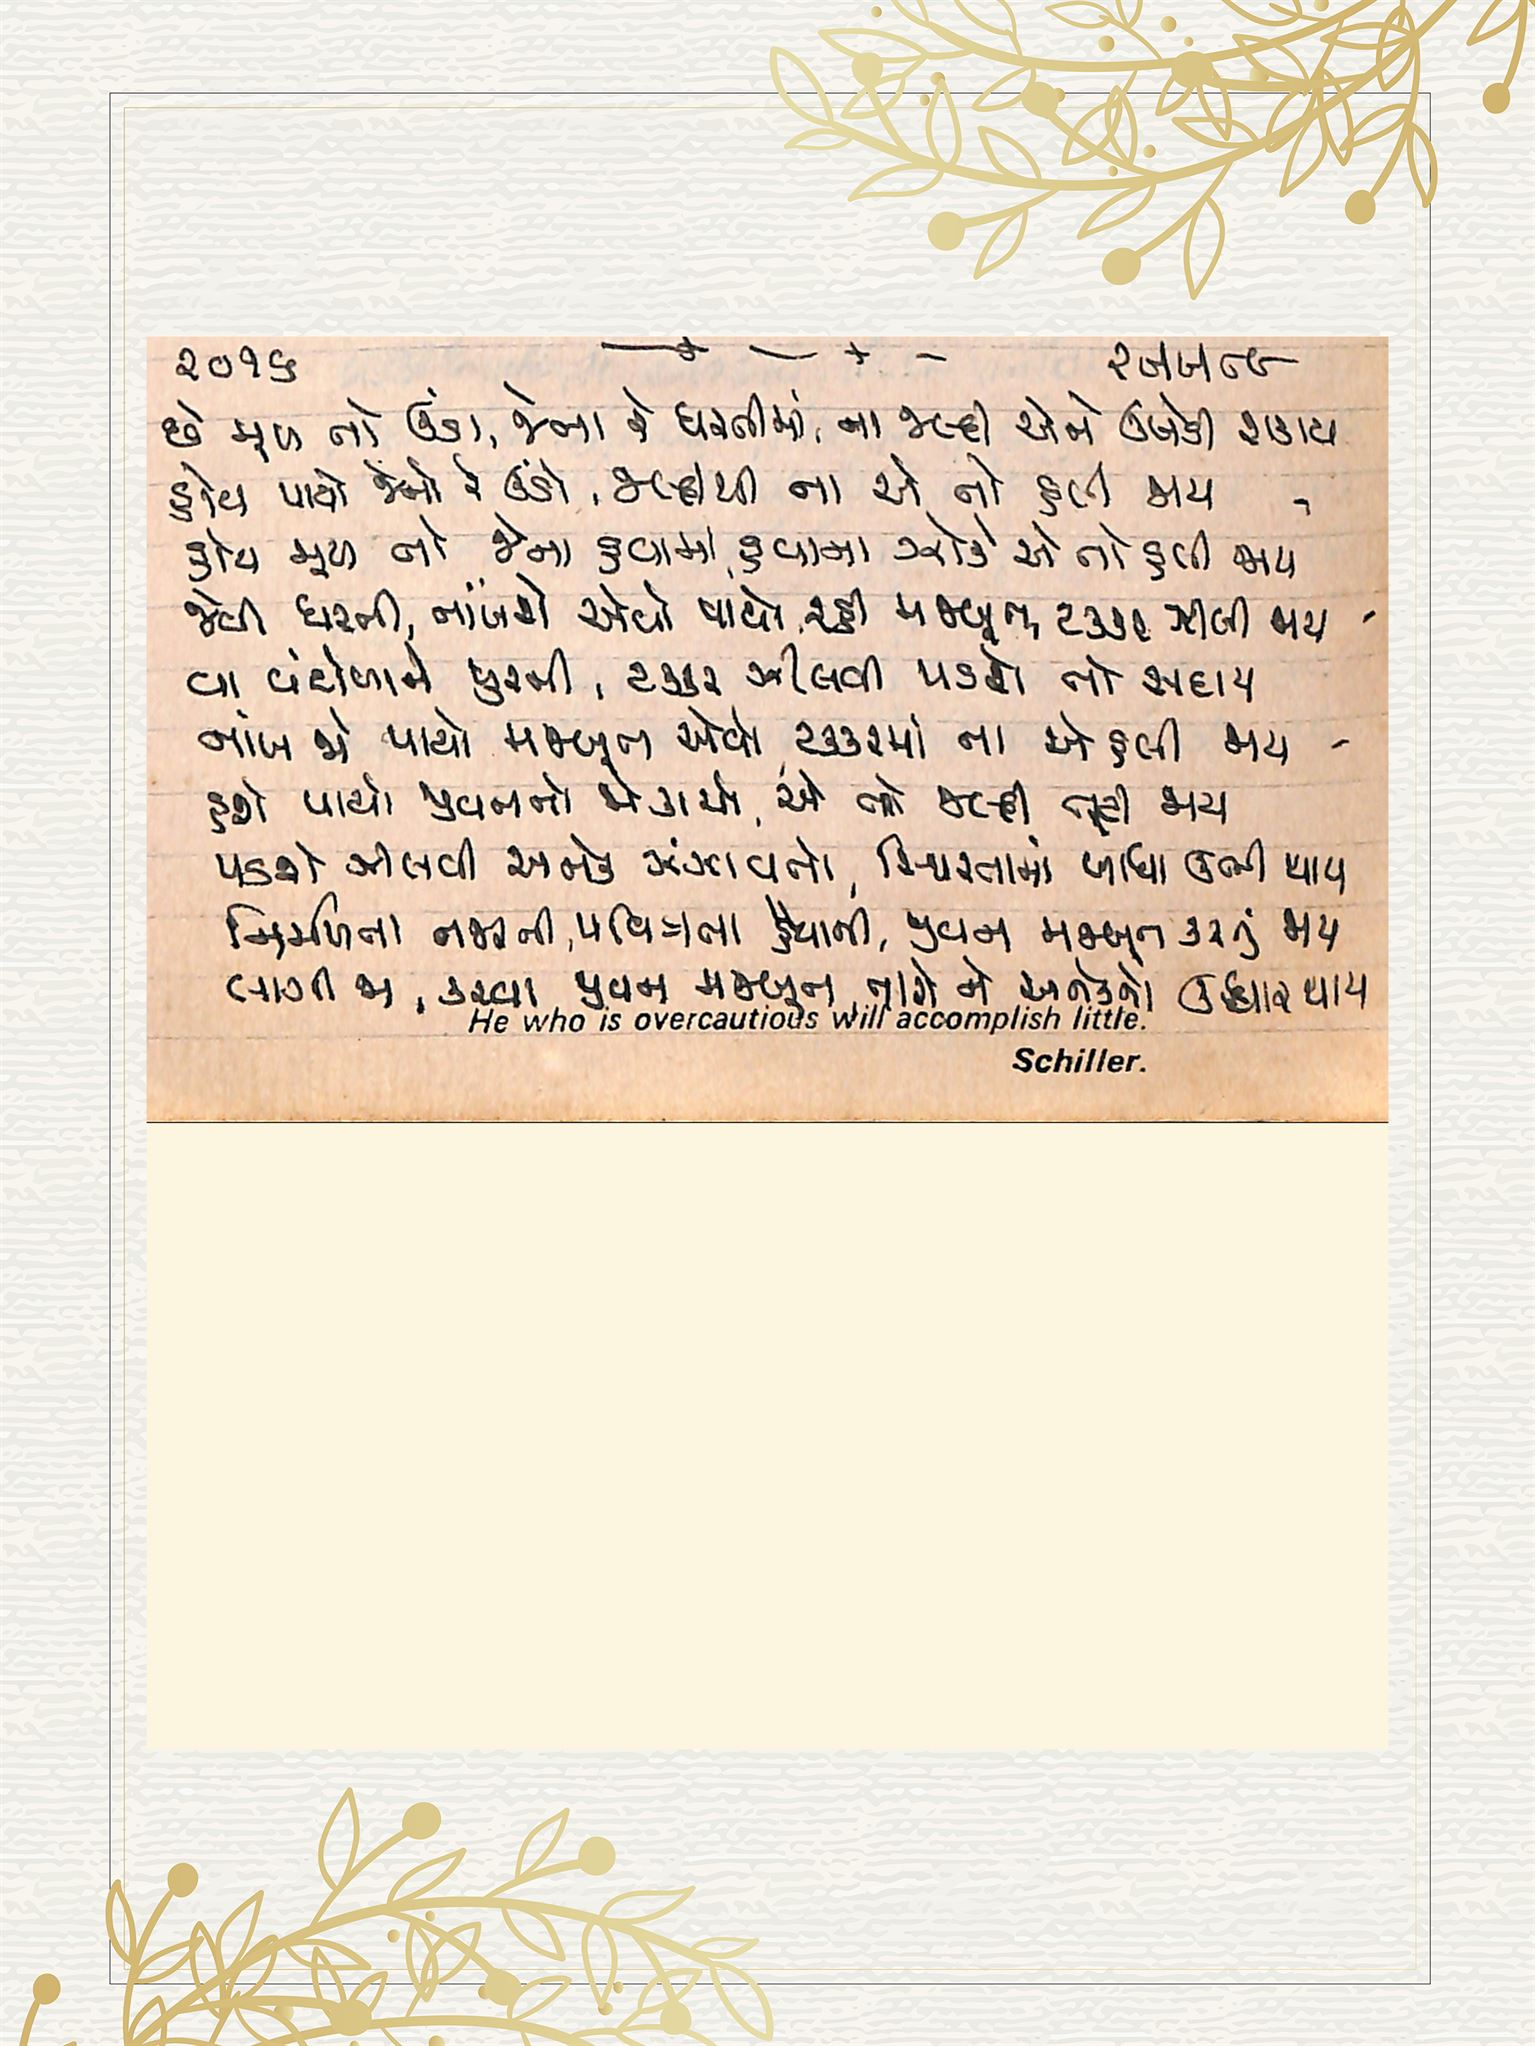 ૨૦૧૬
છે મૂળ તો ઉંડા, જેના રે ધરતીમાં, ના જલ્દી એને ઉખેડી શકાય
હોય પાયો જેનો રે ઉંડો, જલ્દીથી ના એ તો હલી જાય
હોય મૂળ તો જેના હવામાં, હવાના ઝોકે એ તો હલી જાય
જેવી ધરતી, નાંખશે એવો પાયો, રહી મજબૂત, ટક્કર ઝીલી જાય
વા વંટોળાને ધુરની, ટક્કર ઝીલવી પડશે તો સદાય
નાંખ જે પાયો મજબૂત એવો, ટક્કરમાં ના એ હલી જાય
હશે પાયો જીવનનો જે કાચો, એ તો જલ્દી તૂટી જાય
પડશે ઝીલવી અનેક ઝંઝાવાતો, સ્થિરતામાં બાધા ઉભી થાય
નિર્મળતા નજરની, પવિત્રતા હૈયાની, જીવન મજબૂત કરતું જાય
લાગી જા, કરવા જીવન મજબૂત, તારો ને અનેકનો ઉધ્ધાર થાય
He who is overcautious will accomplish little.
Schiller.